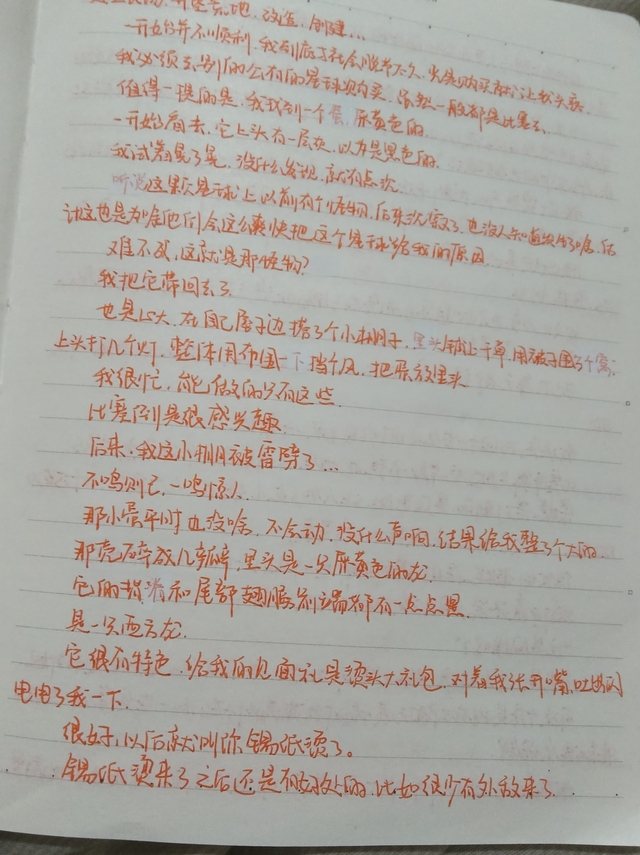 开垦荒地，改造，创建…
一开始并不顺利，我到底于社会脱节太久，光是购买就让我头疼
我必须去别的公有的星球购买，虽然一般都是比塞
值得一提的是，我找到一个蛋，尿黄色的
一开始看去，它上头有一层灰，以为是黑色的
我试着晃了晃，没什么发现，就有点沉
听说这颗星球上以前有个怪物，后来沉寂了，也没人知道发生了啥，估
计这也是为啥他们会这么爽快把这个星球给我的原因
难不成，这就是那怪物？
我把它带回去了
也是心大，在自己房子边搭了个小棚子，里头铺上干草，用被子围了个窝，
上头打几个灯，整体用布围一下挡个风，把蛋放里头
我很忙，能做的只有这些
比塞倒是很感兴趣
后来，我这小棚被雷劈了…
不鸣则已，一鸣惊人
那小蛋平时也没啥，不会动，没什么声响，结果给我整了个大的
那壳碎成几瓣碎，里头是一只尿黄色的龙
它的背脊和尾部翅膀前端都有一点点黑
是一只西方龙
它很有特色，给我的见面礼是烫头大礼包，对着我张开嘴，吐
电电了我一下
很好，以后就叫你锡纸烫了。
锡纸烫来了之后还是有好处的，比如很少有外敌来了